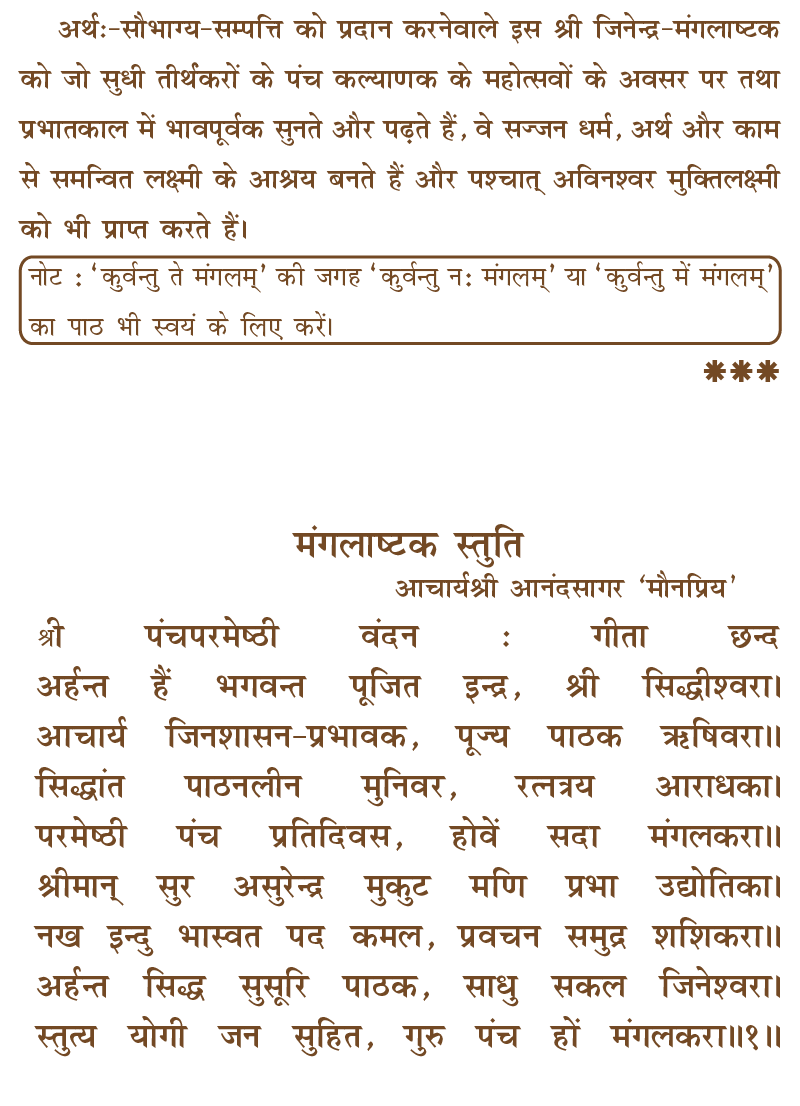 अर्थः-सौभाग्य-सम्पत्ति को प्रदान करनेवाले इस श्री जिनेन्द्र-मंगलाष्टक
को जो सुधी तीर्थंकरों के पंच कल्याणक के महोत्सवों के अवसर पर तथा
प्रभातकाल में भावपूर्वक सुनते और पढ़ते हैं, वे सज्जन धर्म, अर्थ और काम
से समन्वित लक्ष्मी के आश्रय बनते हैं और पश्चात् अविनश्वर मुक्तिलक्ष्मी
को भी प्राप्त करते हैं।
नोट : ‘कुर्वन्तु ते मंगलम्’ की जगह ‘कुर्वन्तु न: मंगलम्’ या ‘कुर्वन्तु में मंगलम्’
का पाठ भी स्वयं के लिए करें।
***
मंगलाष्टक स्तुति
आचार्यश्री आनंदसागर ‘मौनप्रिय’
श्री पंचपरमेष्ठी वंदन : गीता छन्द
अर्हन्त हैं भगवन्त पूजित इन्द्र, श्री सिद्धीश्वरा।
आचार्य जिनशासन-प्रभावक, पूज्य पाठक ऋषिवरा॥
सिद्धांत पाठनलीन मुनिवर, रत्नत्रय आराधका।
परमेष्ठी पंच प्रतिदिवस, होवें सदा मंगलकरा॥
श्रीमान् सुर असुरेन्द्र मुकुट मणि प्रभा उद्योतिका।
नख इन्दु भास्वत पद कमल, प्रवचन समुद्र शशिकरा॥
अर्हन्त सिद्ध सुसूरि पाठक, साधु सकल जिनेश्वरा।
स्तुत्य योगी जन सुहित, गुरु पंच हों मंगलकरा॥१॥